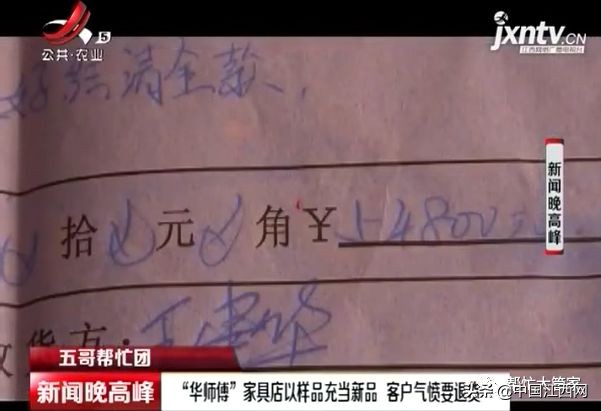 5
公共·农业
jxntv.CN
江西网络广播电视台
好结清全款，
拾 元 角 ¥ 54800元
货方：
新闻晚高峰
五哥帮忙团
新闻晚高峰
“华师傅”家具店以样品充当新品 客户气愤要退货
帮忙大管家
头条@中国江西网